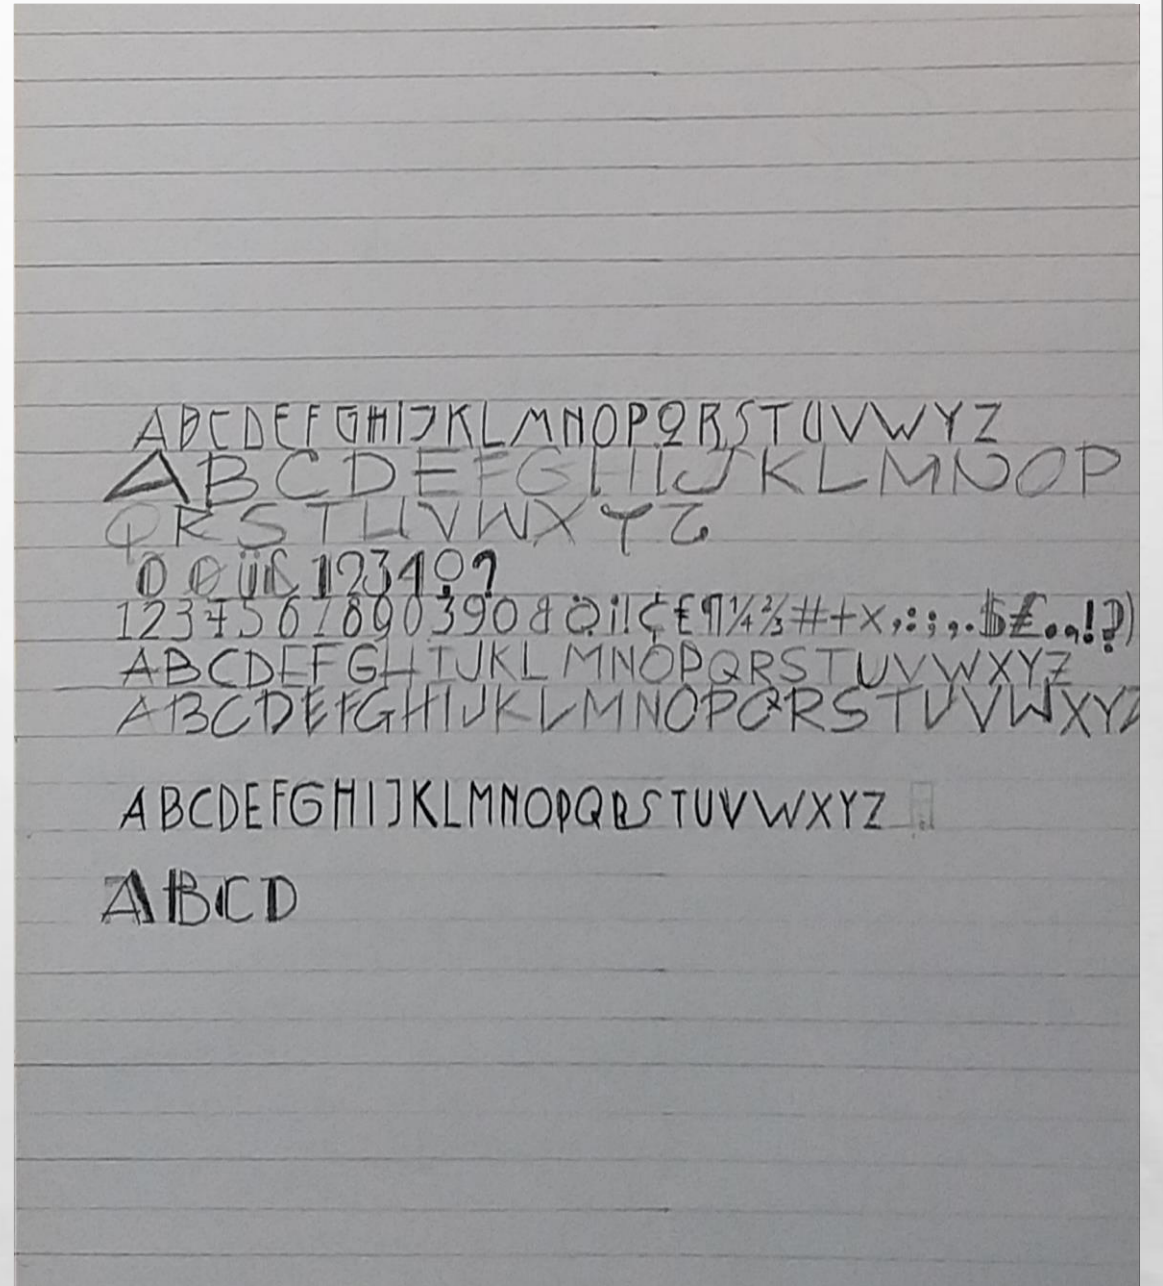 ABCDEFGHIJKLMNOPQRSTUVWYZ
ABCDEFGHIJKLMNOP
QRSTUVWXYZ
Ö Ø Üß 1234
1234567890 390 ¡! ¢ £ ¶ ¼ ⅔ # + × , : ; , . $ £ . , ! ? )
ABCDEFGHIJKLMNOPQRSTUVWXYZ
ABCDEFGHIJKLMNOPQRSTUVWXYZ
ABCDEFGHIJKLMNOPQRSTUVWXYZ
ABCD